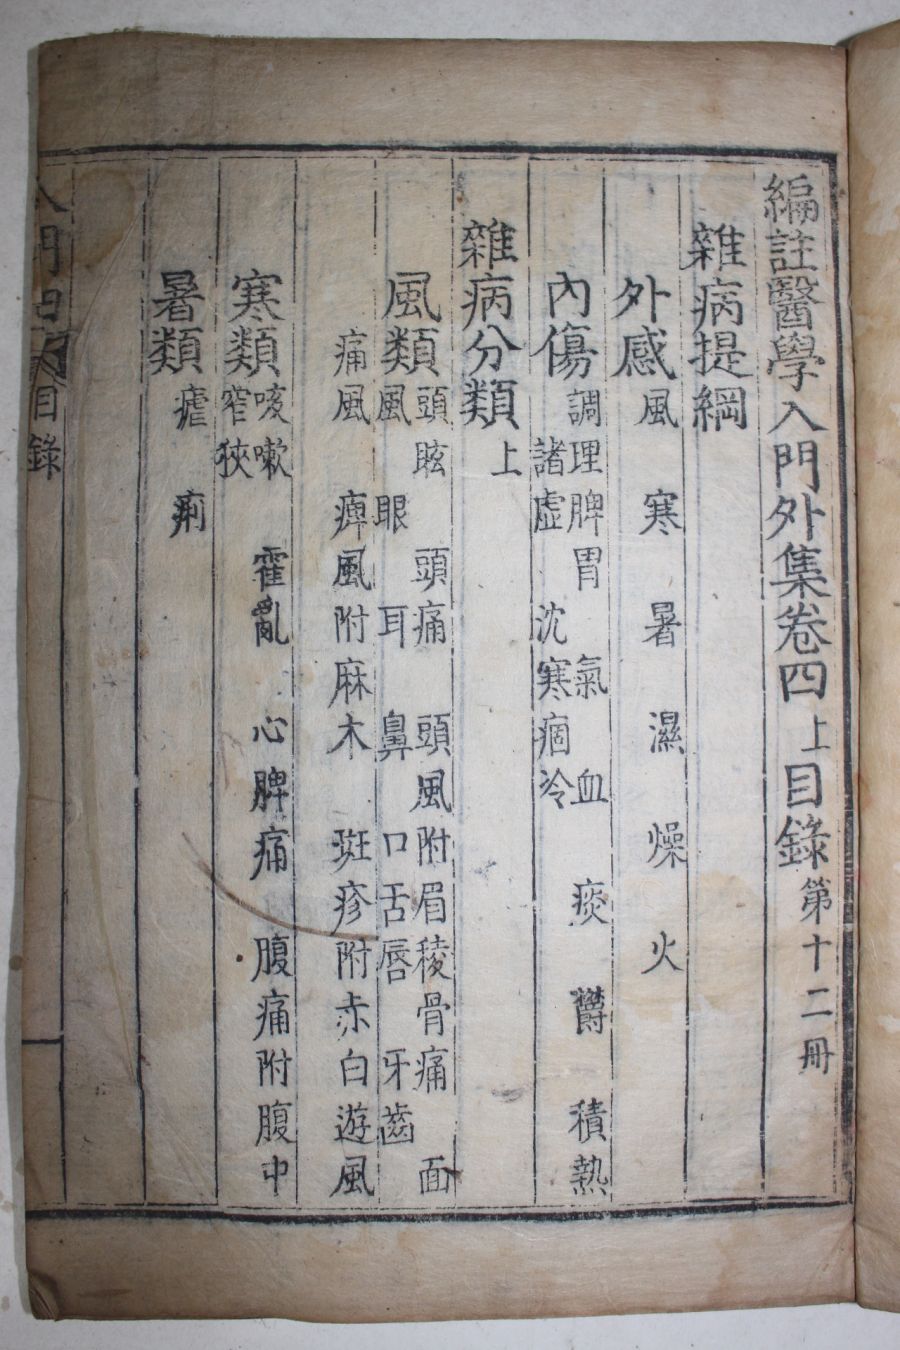 編註醫學入門外集卷四上目錄第十二冊
雜病提綱
外感風 寒 暑 濕 燥 火
內傷調理脾胃 氣 血 痰 鬱 積熱
諸虛 沈寒痼冷
雜病分類上
風類頭眩 頭痛 頭風附眉稜骨痛 面
風 眼 耳 鼻 口舌唇 牙齒
痛風 痺風附麻木 斑疹附赤白遊風
寒類咳嗽 霍亂 心脾痛 腹痛附腹中
窄狹
暑類瘧 痢
入門四 目錄